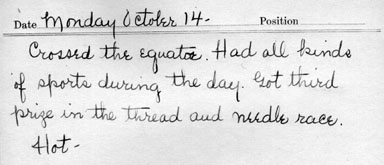 Date Monday October 14- Position
Crossed the equator. Had all kinds
of sports during the day. Got third
prize in the thread and needle race.
Hot-